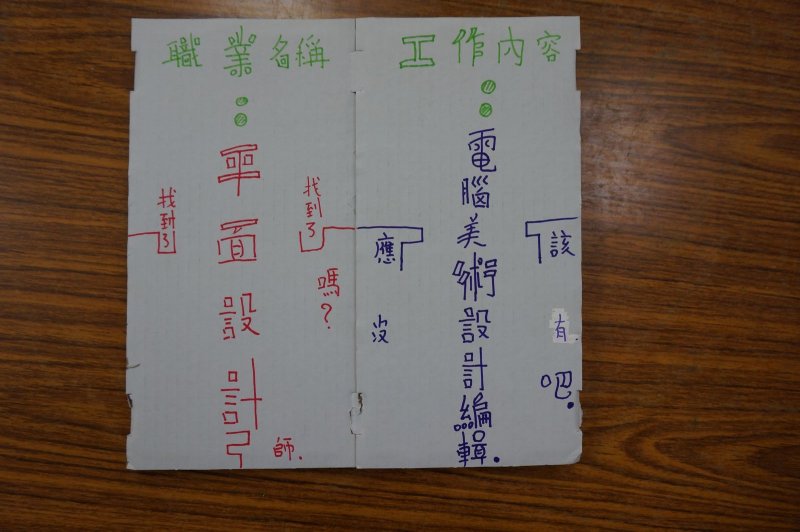 職業名稱：
平面設計師.
找到了
找到了
嗎？
工作內容：
電腦美術設計編輯.
應該
沒有吧.